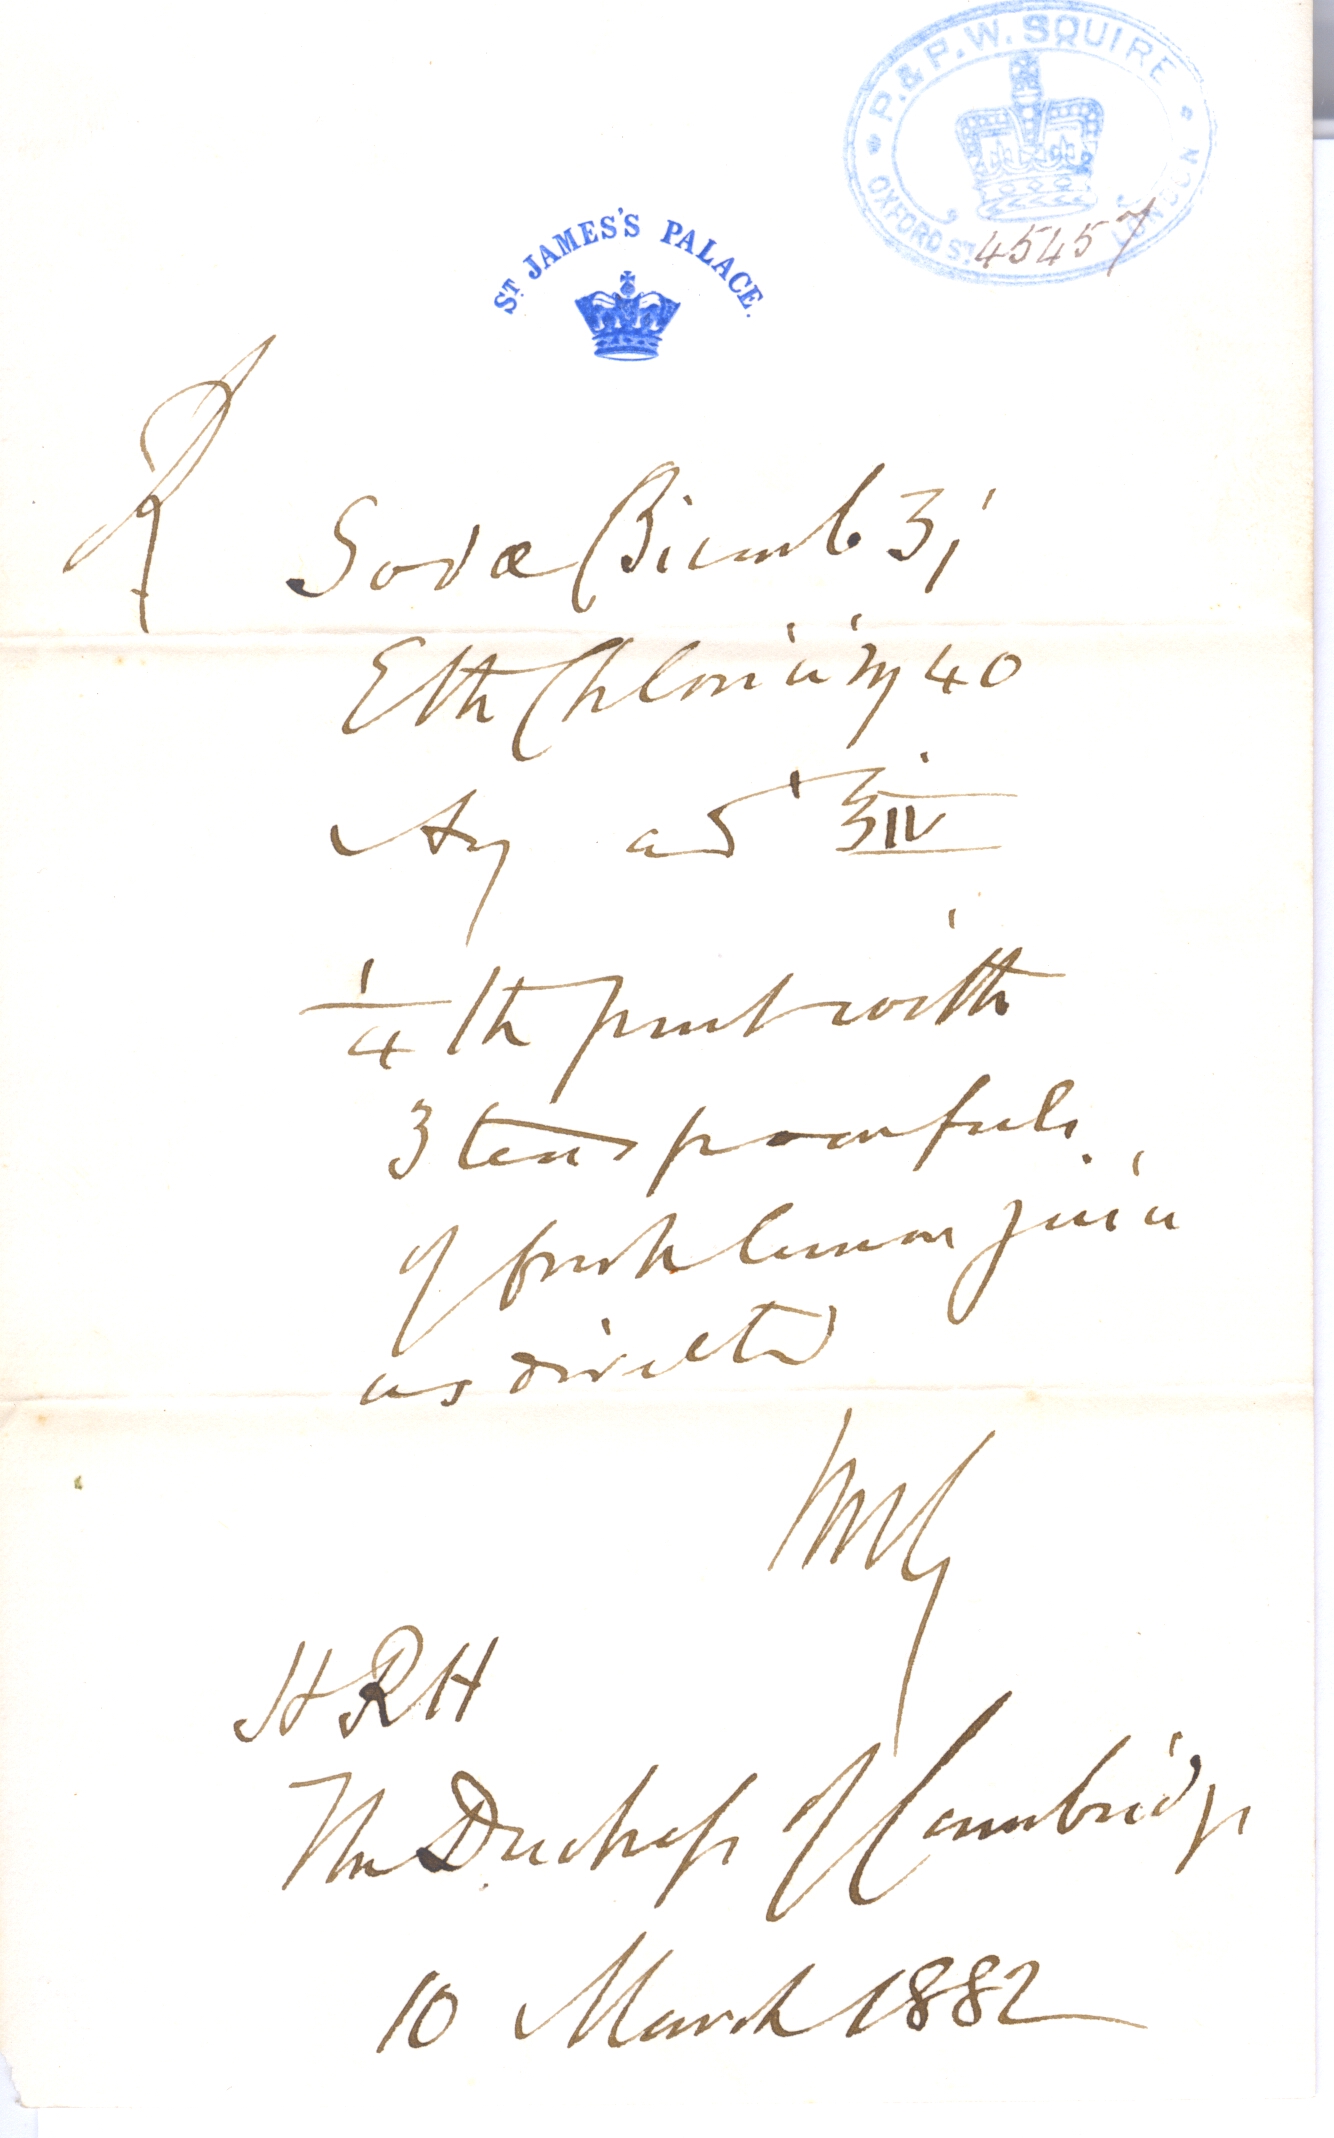 P. & P. W. SQUIRE
OXFORD ST. LONDON
45457
ST. JAMES'S PALACE.
℞
Sodæ Bicarb ʒj
Eth Chlorici ♏ 40
Aq ad ℥iv
1/4 th part with
3 teaspoonfuls
of fresh lemon juice
as directed
HRH
The Duchess of Cambridge
10 March 1882